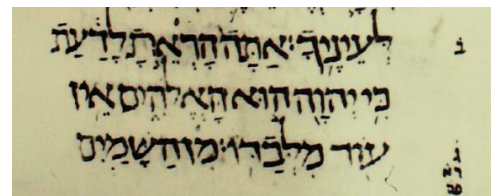 לְעֵינֶיךָ׃ אַתָּה הָרְאֵתָ לָדַעַת
כִּי יְהוָה הוּא הָאֱלֹהִים אֵין
עוֹד מִלְבַדּוֹ׃ מִן הַשָּׁמַיִם